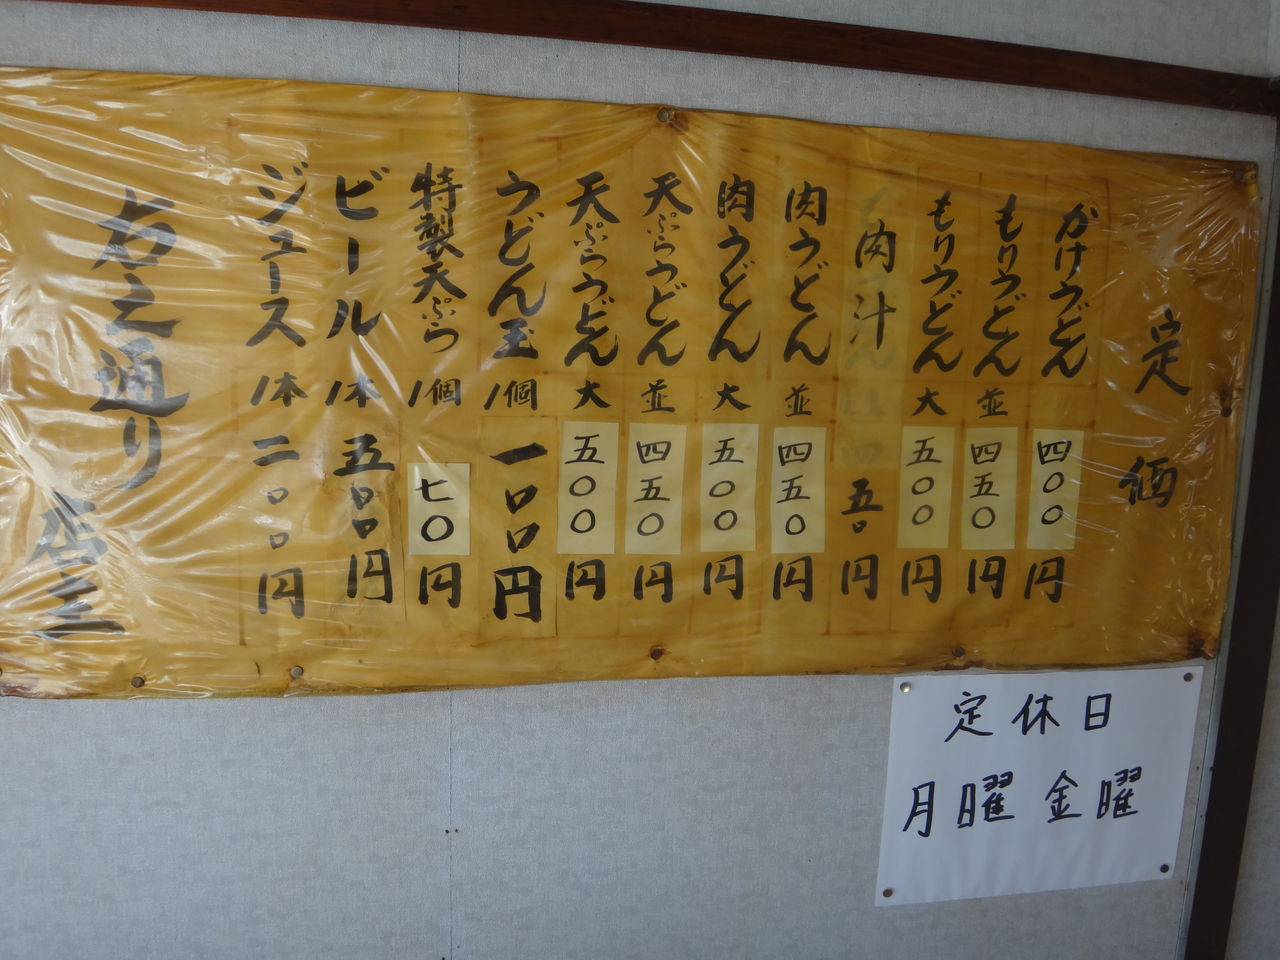 定価
かけうどん 四〇〇円
もりうどん 並 四五〇円
もりうどん 大 五〇〇円
肉汁 五〇円
肉うどん 並 四五〇円
肉うどん 大 五〇〇円
天ぷらうどん 並 四五〇円
天ぷらうどん 大 五〇〇円
うどん玉 1個 一〇〇円
特製天ぷら 1個 七〇円
ビール 1本 五〇〇円
ジュース 1本 二〇〇円
右之通り 店主
定休日
月曜 金曜